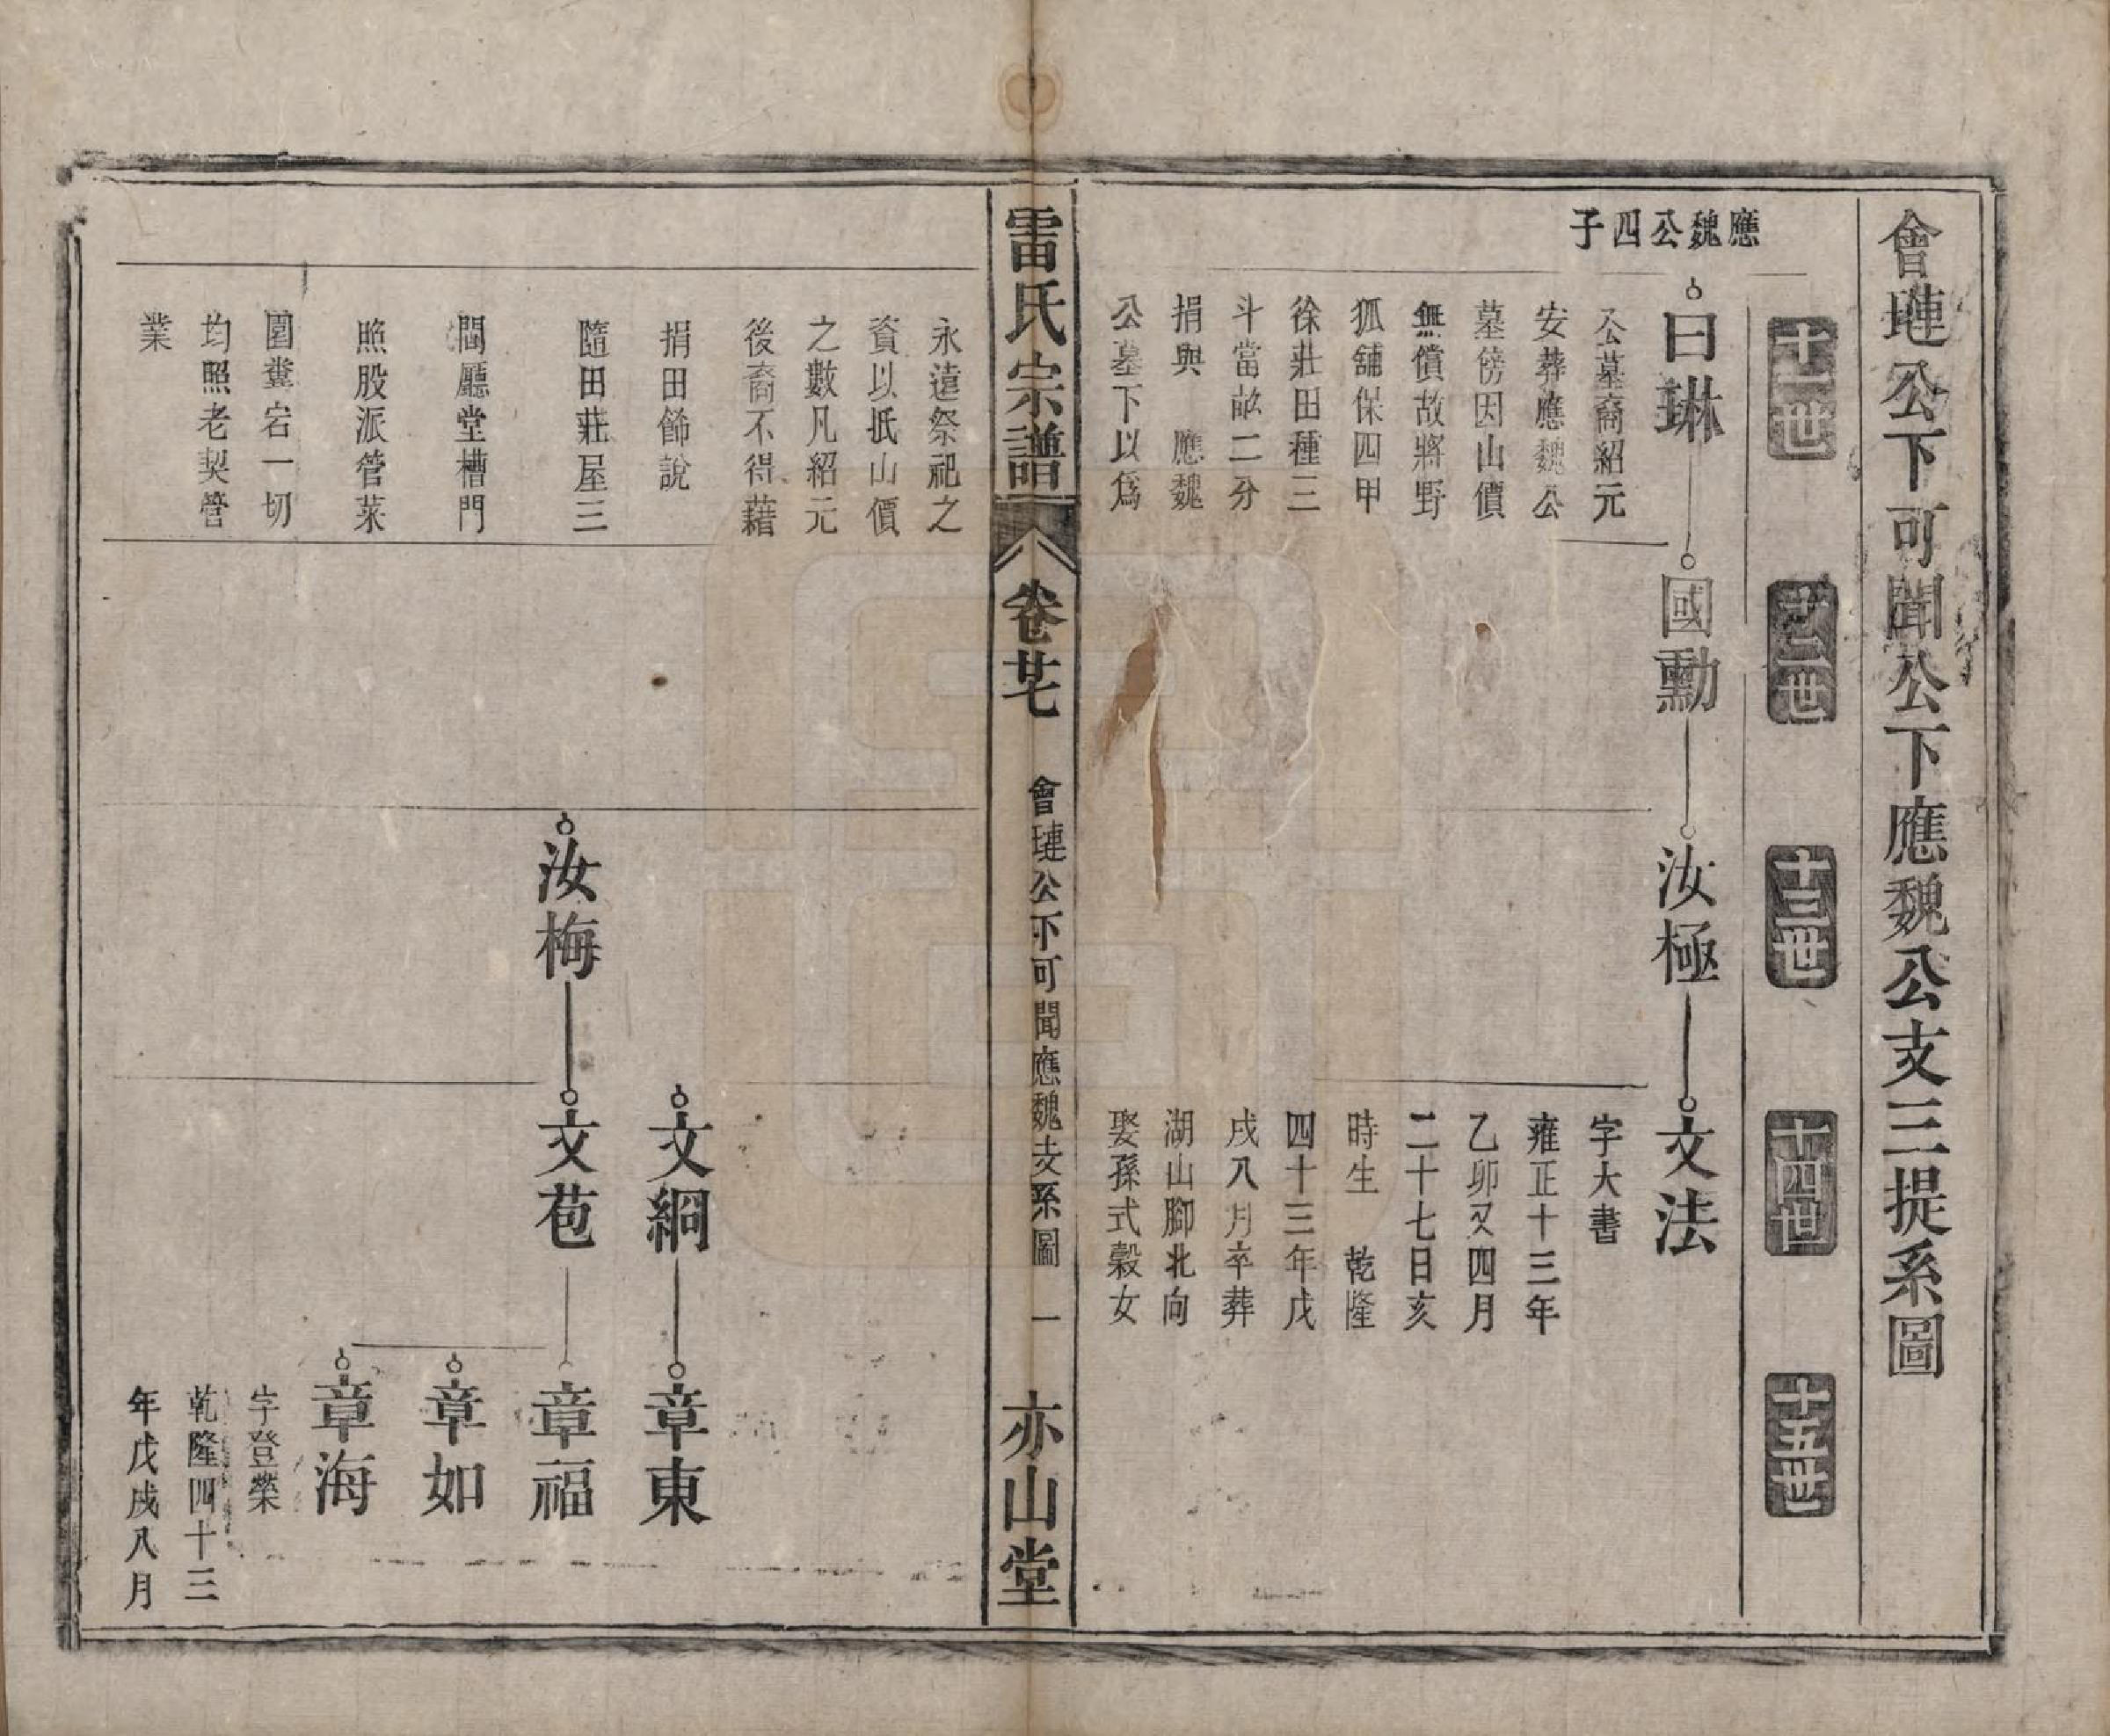 會璉公下可聞公下應魏公支三提系圖
十一世
十二世
十三世
十四世
十五世
應魏公四子
曰琳
公墓裔紹元
安葬應魏公
墓傍因山價
無償故將野
狐舖保四甲
徐莊田種三
斗當畝二分
捐與 應魏
公墓下以爲
國勳
汝極
文法
字大書
雍正十三年
乙卯又四月
二十七日亥
時生 乾隆
四十三年戊
戌八月卒葬
湖山腳北向
娶孫式穀女
雷氏宗譜
卷廿七
會璉公下可聞應魏支系圖
一
亦山堂
永遠祭祀之
資以抵山價
之數凡紹元
後裔不得藉
捐田餙說
隨田莊屋三
間廳堂槽門
照股派管菜
園糞宕一切
均照老契管
業
汝梅
文綱
文苞
章東
章福
章如
章海
字登榮
乾隆四十三
年戊戌八月